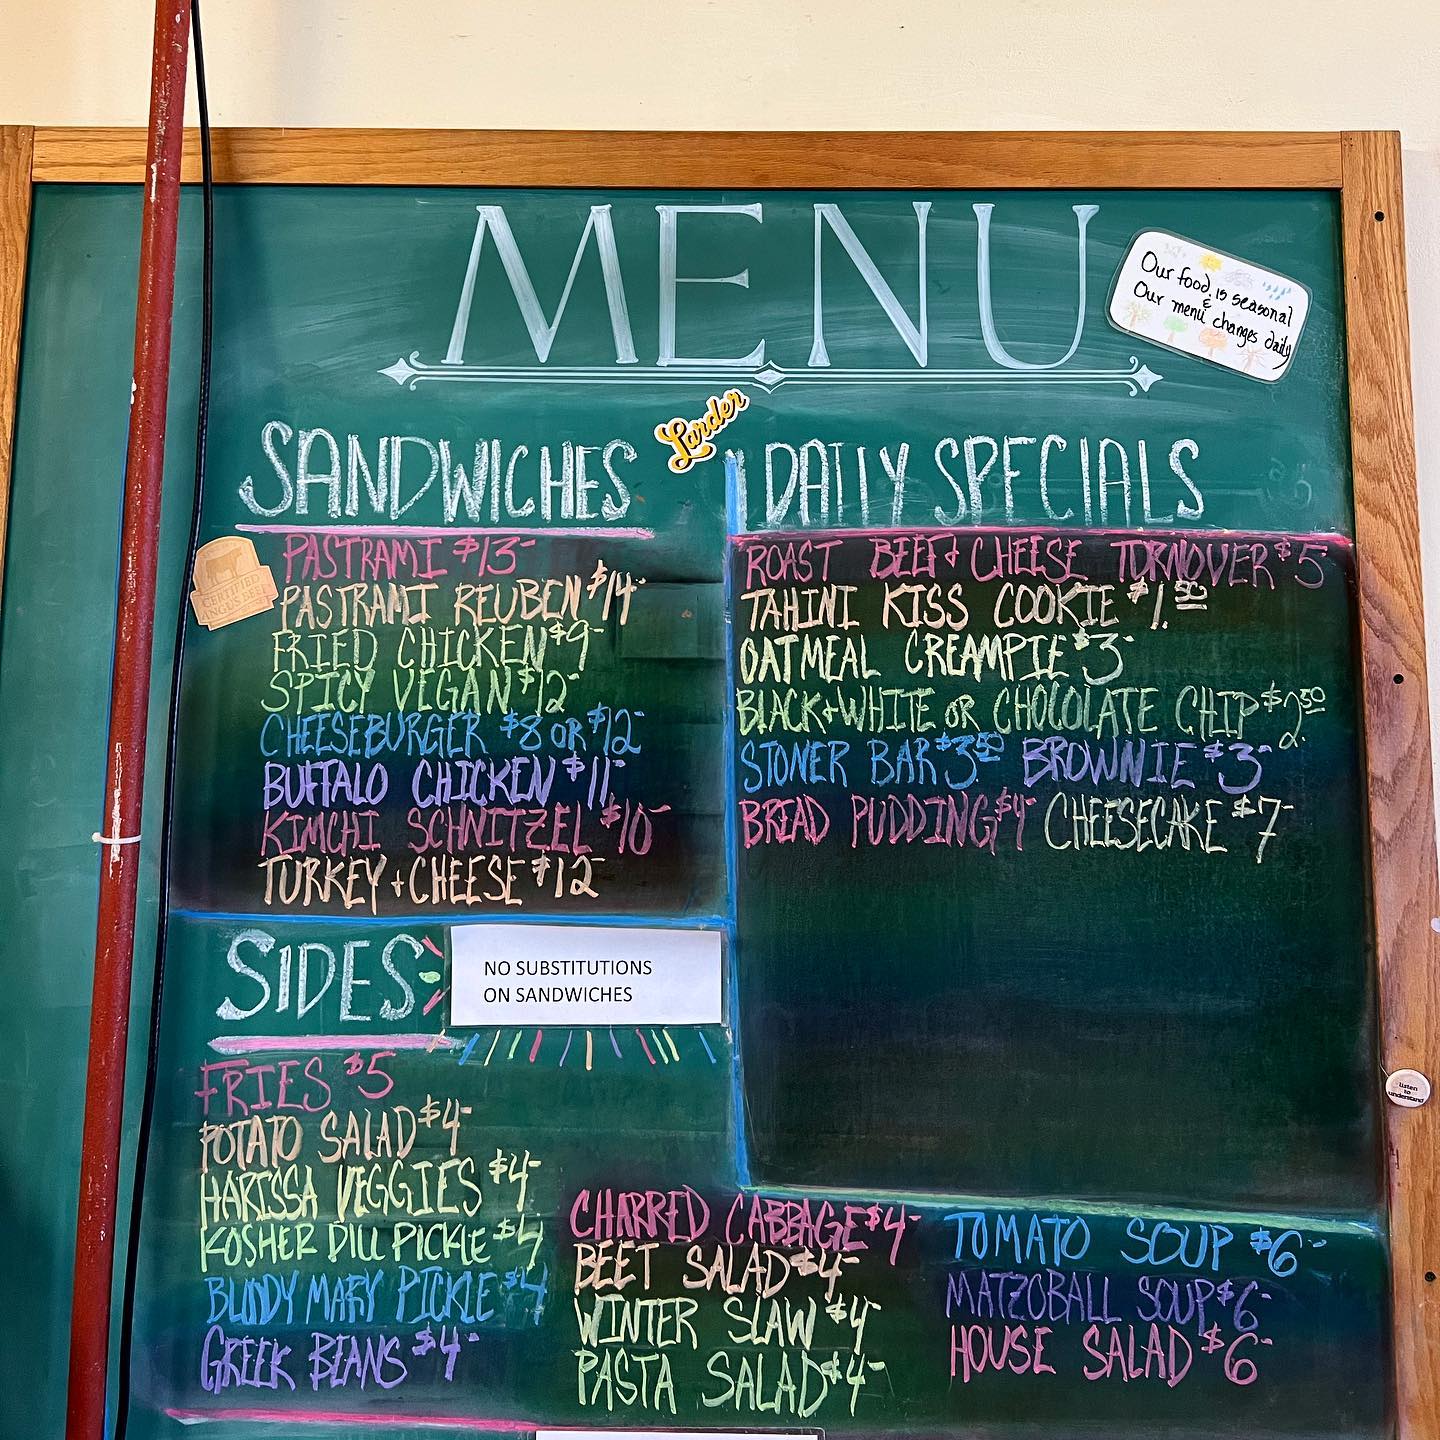 MENU
Our food is seasonal
&
Our menu changes daily
Larder
SANDWICHES
CERTIFIED
ANGUS BEEF
PASTRAMI $13-
PASTRAMI REUBEN $14-
FRIED CHICKEN $9-
SPICY VEGAN $12-
CHEESEBURGER $8 OR $12-
BUFFALO CHICKEN $11-
KIMCHI SCHNITZEL $10-
TURKEY + CHEESE $12-
DAILY SPECIALS
ROAST BEEF + CHEESE TURNOVER $5
TAHINI KISS COOKIE $1.50
OATMEAL CREAMPIE $3-
BLACK+WHITE OR CHOCOLATE CHIP $2.50
STONER BAR $3.50 BROWNIE $3-
BREAD PUDDING $4- CHEESECAKE $7-
SIDES:
NO SUBSTITUTIONS
ON SANDWICHES
FRIES $5
POTATO SALAD $4-
HARISSA VEGGIES $4-
KOSHER DILL PICKLE $4
BLOODY MARY PICKLE $4
GREEK BEANS $4-
CHARRED CABBAGE $4-
BEET SALAD $4-
WINTER SLAW $4-
PASTA SALAD $4-
TOMATO SOUP $6-
MATZOBALL SOUP $6-
HOUSE SALAD $6-
listen
to
understand